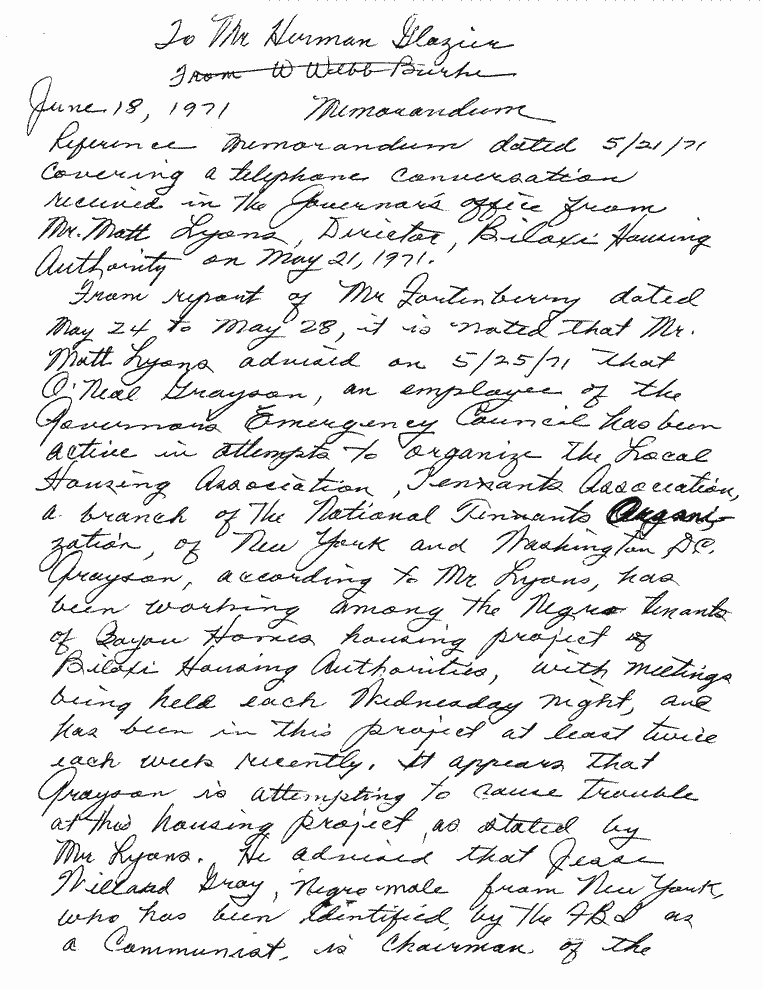 To Mr Herman Glazier
From W Webb Burke
June 18, 1971 Memorandum
Reference memorandum dated 5/21/71
covering a telephone conversation
received in the Governor's office from
Mr. Matt Lyons, Director, Biloxi Housing
Authority on May 21, 1971.
From report of Mr Fortenberry dated
May 24 to May 28, it is noted that Mr.
Matt Lyons advised on 5/25/71 that
O'Neal Grayson, an employee of the
Governor's Emergency Council has been
active in attempts to organize the Local
Housing Association, Tennants Association,
a branch of the National Tennants Organi-
zation, of New York and Washington D.C.
Grayson, according to Mr Lyons, has
been working among the Negro tenants
of Bayou Homes housing project of
Biloxi Housing Authorities, with meetings
being held each Wednesday night, and
has been in this project at least twice
each week recently. It appears that
Grayson is attempting to cause trouble
at this housing project, as stated by
Mr Lyons. He advised that Jesse
Willard Gray, Negro male from New York,
who has been identified, by the FBI as
a Communist, is Chairman of the